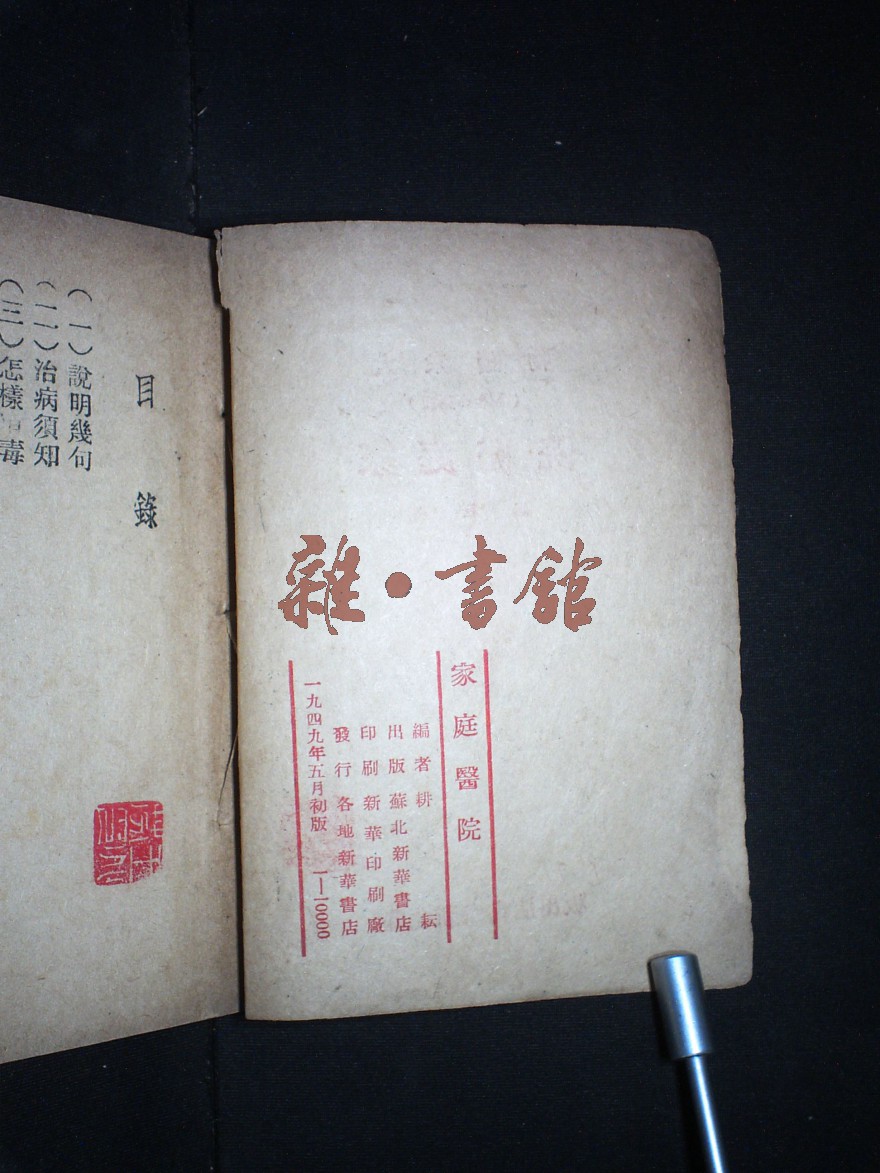 雜·書館
家庭醫院
編者 耕耘
出版 蘇北新華書店
印刷 新華印刷廠
發行 各地新華書店
一九四九年五月初版 1—10000
目錄
(一)說明幾句
(二)治病須知
(三)怎樣 毒